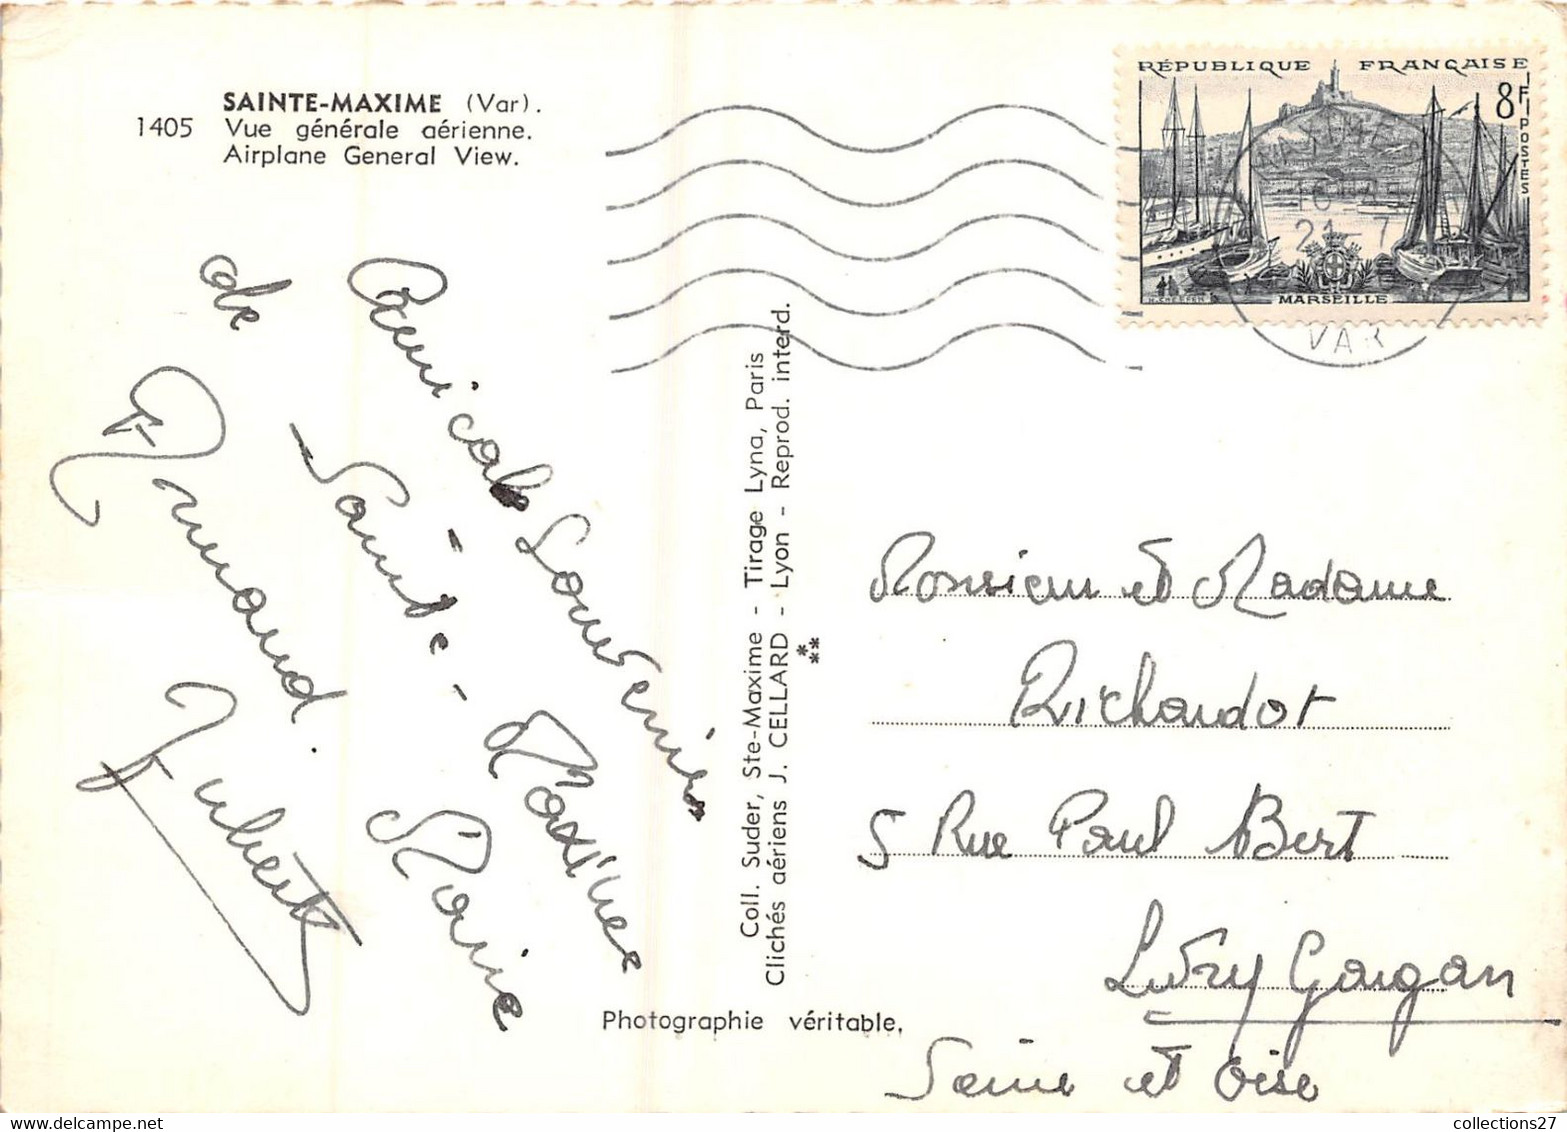 SAINTE-MAXIME (Var).
1405 Vue générale aérienne.
Airplane General View.
RÉPUBLIQUE FRANÇAISE
8F
POSTES
MARSEILLE
16
21-7
VAR
Amicales Souvenirs
de Sainte-Maxime
Armand. Marie
Coll. Suder, Ste-Maxime - Tirage Lyna, Paris
Clichés aériens J. CELLARD - Lyon - Reprod. interd.
Photographie véritable.
Monsieur et Madame
Richardot
5 Rue Paul Bert
Livry Gargan
Seine et Oise
collections27